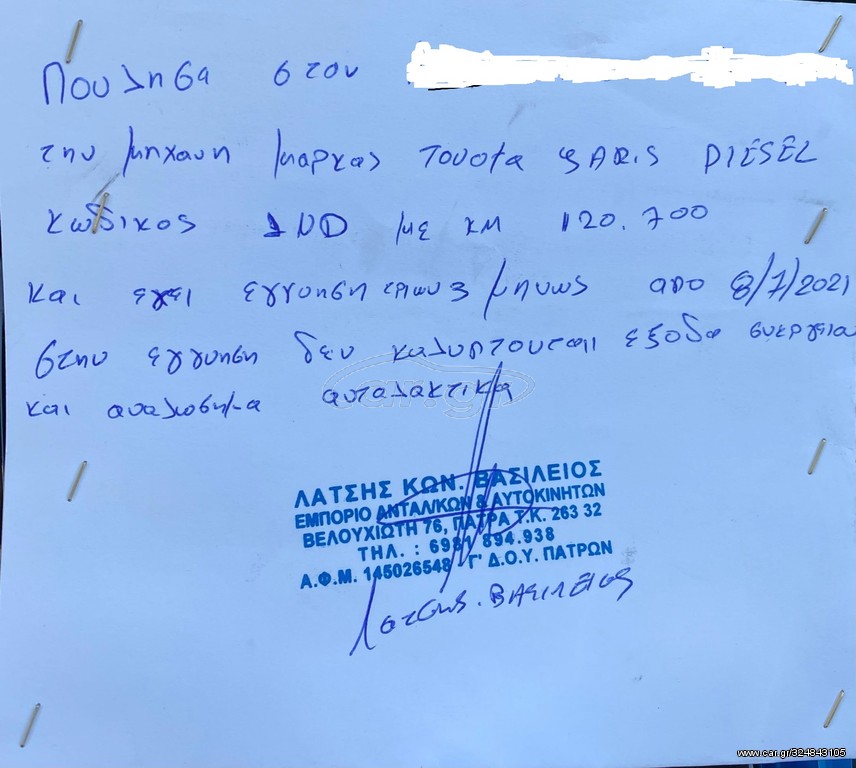 Πουλησα στον
την μηχανη μαρκας TOYOTA YARIS DIESEL
κωδικος 1ND με ΚΜ 120.700
και εχει εγγυηση τριων 3 μηνως απο 8/7/2021
στην εγγυηση δεν καλυπτουται εξοδα συεργειου
και αναλωσημα ανταλακτικα
ΛΑΤΣΗΣ ΚΩΝ. ΒΑΣΙΛΕΙΟΣ
ΕΜΠΟΡΙΟ ΑΝΤΑΛ/ΚΩΝ & ΑΥΤΟΚΙΝΗΤΩΝ
ΒΕΛΟΥΧΙΩΤΗ 76, ΠΑΤΡΑ Τ.Κ. 263 32
ΤΗΛ. : 6981 894.938
Α.Φ.Μ. 145026548 - Γ' Δ.Ο.Υ. ΠΑΤΡΩΝ
Λατσης. ΒΑΣΙΛΕΙΟς
car.gr
www.car.gr/324843105